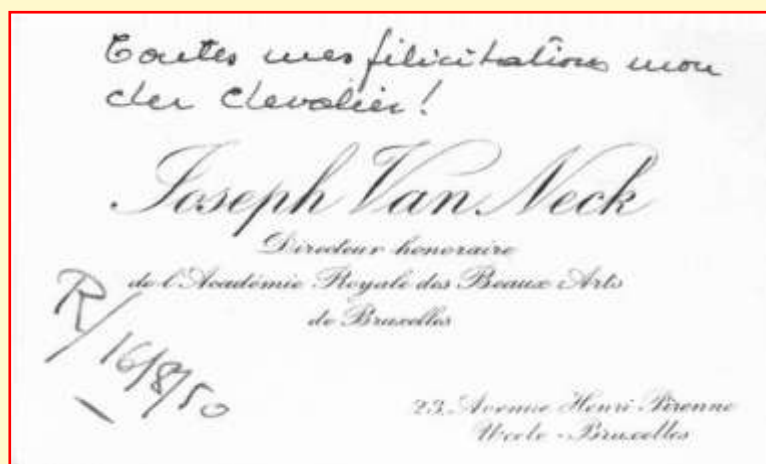 Toutes mes félicitations mon
cher Chevalier!
Joseph Van Neck
Directeur honoraire
de l'Académie Royale des Beaux-Arts
de Bruxelles
R/16/8/50
23, Avenue Henri Pirenne
Uccle - Bruxelles